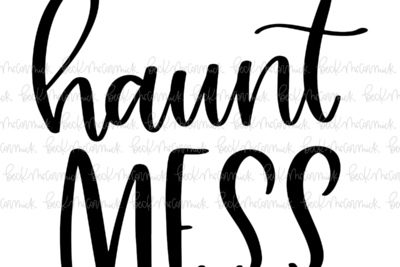 haunt
MESS